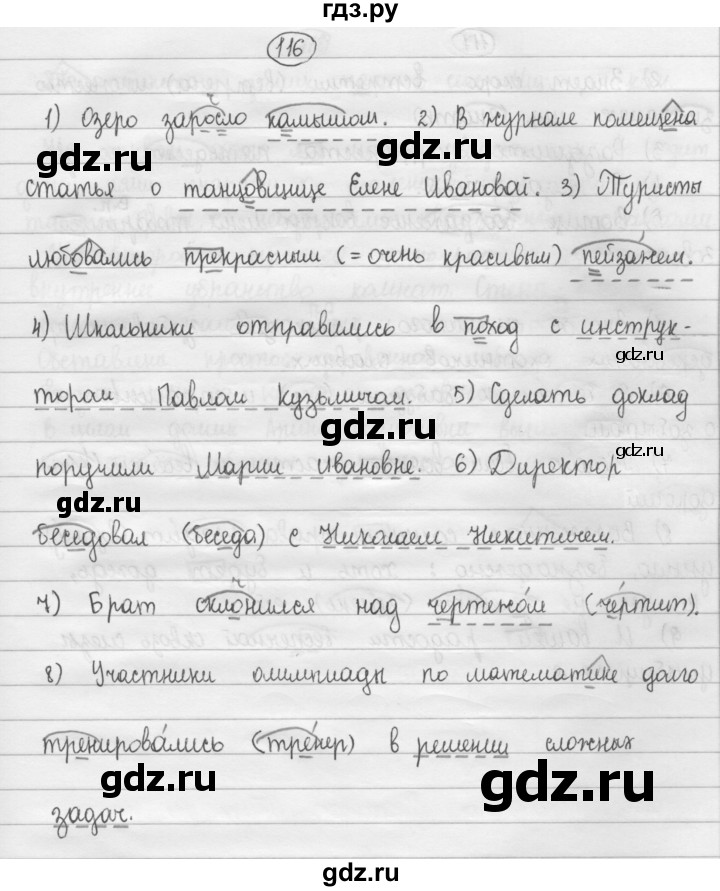 гдз.ру
116
1) Озеро заросло камышом. 2) В журнале помещена
gdz.ru gdz.ru
статья о танцовщице Елене Ивановой. 3) Туристы
любовались прекрасным (= очень красивым) пейзажем.
gdz.ru
4) Школьники отправились в поход с инструк-
gdz.ru
тором Павлом Кузьмичом. 5) Сделать доклад
gdz.ru
поручили Марии Ивановне. 6) Директор
gdz.ru
gdz.ru
беседовал (беседа) с Николаем Никитичем.
gdz.ru
7) Брат склонился над чертежом (чертит).
gdz.ru
8) Участники олимпиады по математике долго
gdz.ru
тренировались (тренер) в решении сложных
gdz.ru gdz.ru
задач.
gdz.ru